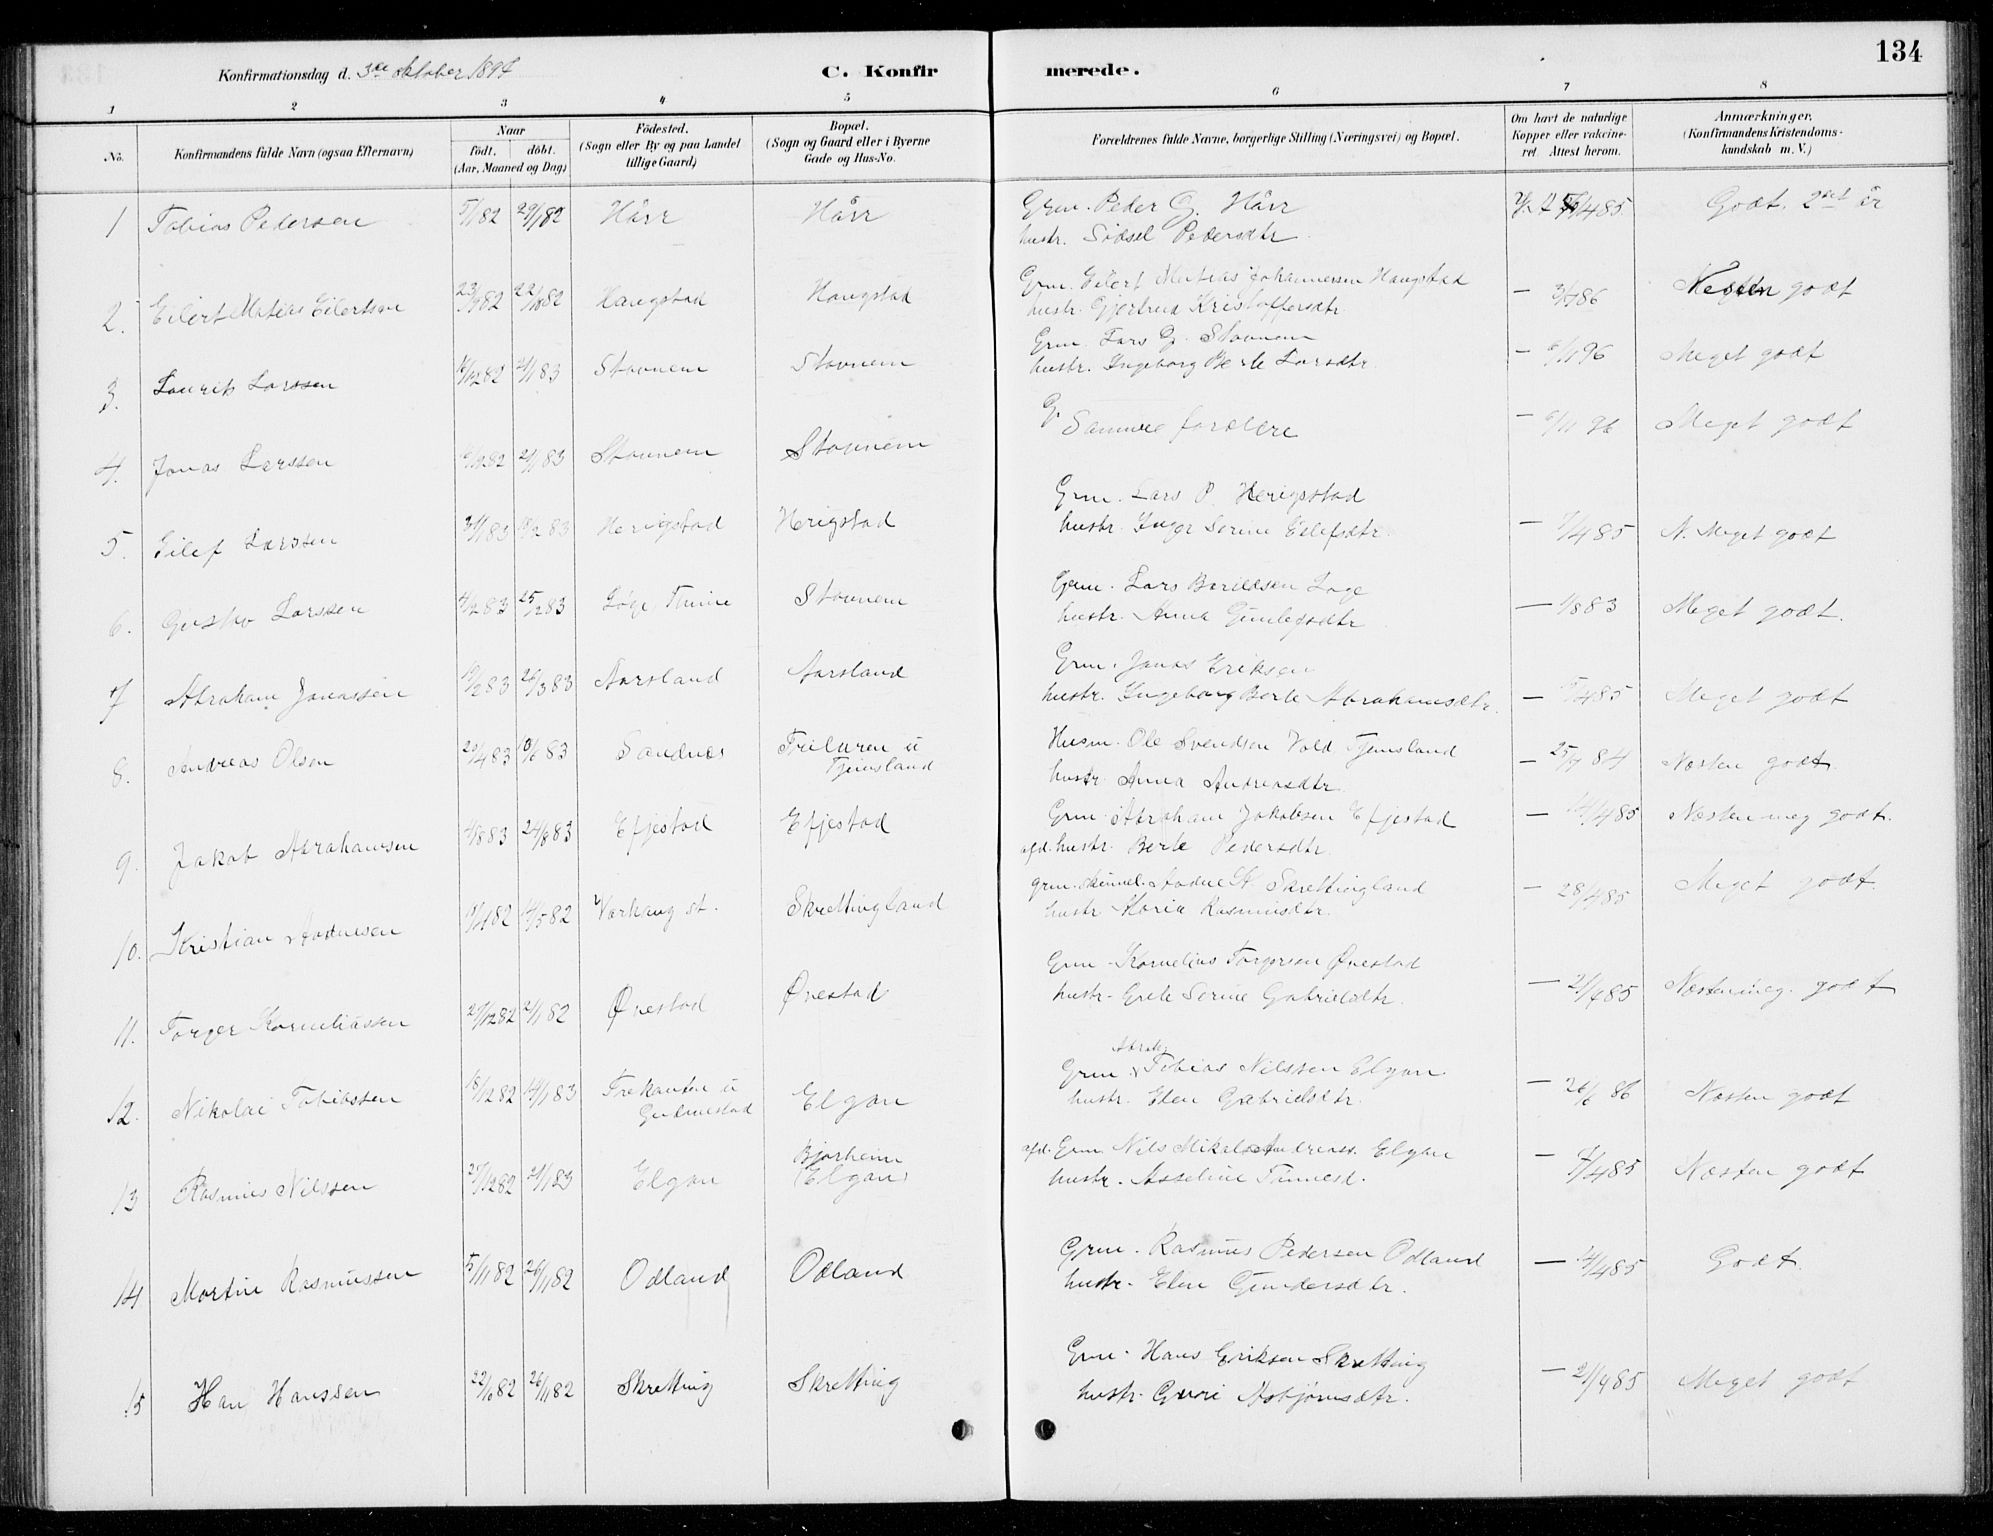 134
Konfirmationsdag d. 3die oktober 1897
C. Konfirmerede.
1 2 3 4 5 6 7 8
No.
Konfirmandens fulde Navn (ogsaa Efternavn)
Naar
födt. döbt.
(Aar, Maaned og Dag)
Födested.
(Sogn eller By og paa Landet
tillige Gaard)
Bopæl.
(Sogn og Gaard eller i Byerne
Gade og Hus-No.
Forældrenes fulde Navne, borgerlige Stilling (Næringsvei) og Bopæl.
Om havt de naturlige
Kopper eller vakcine-
ret. Attest herom.
Anmærkninger,
(Konfirmandens Kristendoms-
kundskab m. V.)
1 Tobias Pedersen 29/1 82 Hårr Hårr
Grm. Peder G. Hårr
hustr. Sidsel Pedersdtr.
Godt. 2net år
2. Eilert Matias Eilertsen Haugstad Haugstad
Grm. Eilert Matias Johannessen Haugstad
hustr. Gjertrud Kristoffersdtr.
Nesten godt
3. Laurits Larssen Stovnem Stovnem
Grm. Lars G. Stovnem
hustr. Ingeborg Berte Larsdtr.
— 6/11 96 Meget godt
4. Jonas Larssen Stovnem Stovnem
Samme forældre
— 6/11 96 Meget godt
5. Eilef Larssen Herigstad Herigstad
Grm. Lars P. Herigstad
hustr. Inger Serine Eilefsdtr.
— 7/4 85 N. Meget godt
6. Gustav Larssen 25/2 83 Stovnem
Grm. Lars Bertilsen
hustr. Anna Gunlefsdtr
— 1/8 83 Meget godt.
7 Abraham Jonassen 26/3 83 Aarsland Aarsland
Grm. Jonas Eriksen
hustr. Ingeborg Berte Abrahamsdtr.
Meget godt
8. Andreas Olsen 20/4 83 10/6 83 Sandnes
Tjemsland
Husm. Ole Svendsen Vold Tjemsland
hustr. Anna Andreasdtr.
— 25/7 84 Næsten godt
9. Jakob Abrahamsen 24/6 83 Efjestad Efjestad
Grm. Abraham Jakobsen Efjestad
afd. hustr. Berte Pedersdtr.
— 14/4 85 Næsten meg godt.
10. Kristian Aadnesen 14/5 82 Varhaug st. Skrettingland
grm. Aadne A Skrettingland
hustr. Maria Rasmusdtr.
— 28/4 85 Meget godt.
11. Torger Korneliussen 27/12 82 Ønestad Ønestad
Grm. Kornelius Torgersen Ønestad
hustr. Grete Serine Gabrielsdtr.
— 21/4 85 Næsten meg. godt
12. Nikolai Tobiassen 18/12 82 14/1 83
Elgan
Grm. Tobias Nilssen Elgan.
hustr. Elen Gabrielsdtr.
— 26/6 86 Næsten godt
13 Rasmus Nilssen 27/12 82 21/1 83 Elgan
Bjorheim
(Elgan)
afd. Grm Nils Mikal Andreass. Elgan
hustr. Asseline Tønnesd.
— 7/4 85 Næsten godt
14 Martin Rasmussen 5/11 82 26/11 82 Odland Odland
Grm. Rasmus Pedersen Odland
hustr. Elen Gundersdtr.
— 14/4 85 Godt.
15 Han Hanssen 26/11 82 Skretting Skretting
Grm. Hans Eriksen Skretting
hustr. Guri Asbjørnsdtr.
— 21/4 85 Meget godt